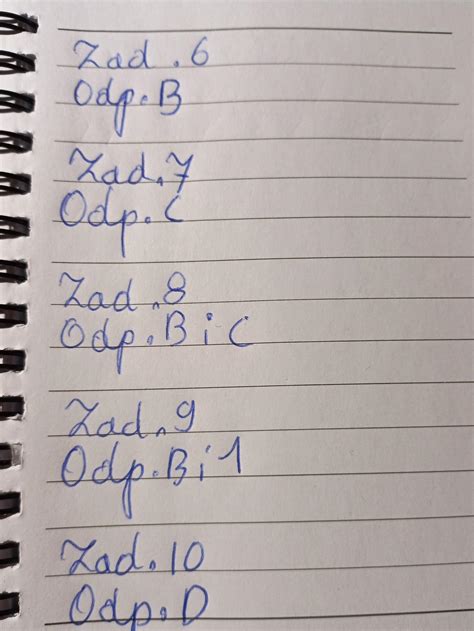 Zad. 6
Odp. B
Zad. 7
Odp. C
Zad. 8
Odp. B i C
Zad. 9
Odp. B i 1
Zad. 10
Odp. D